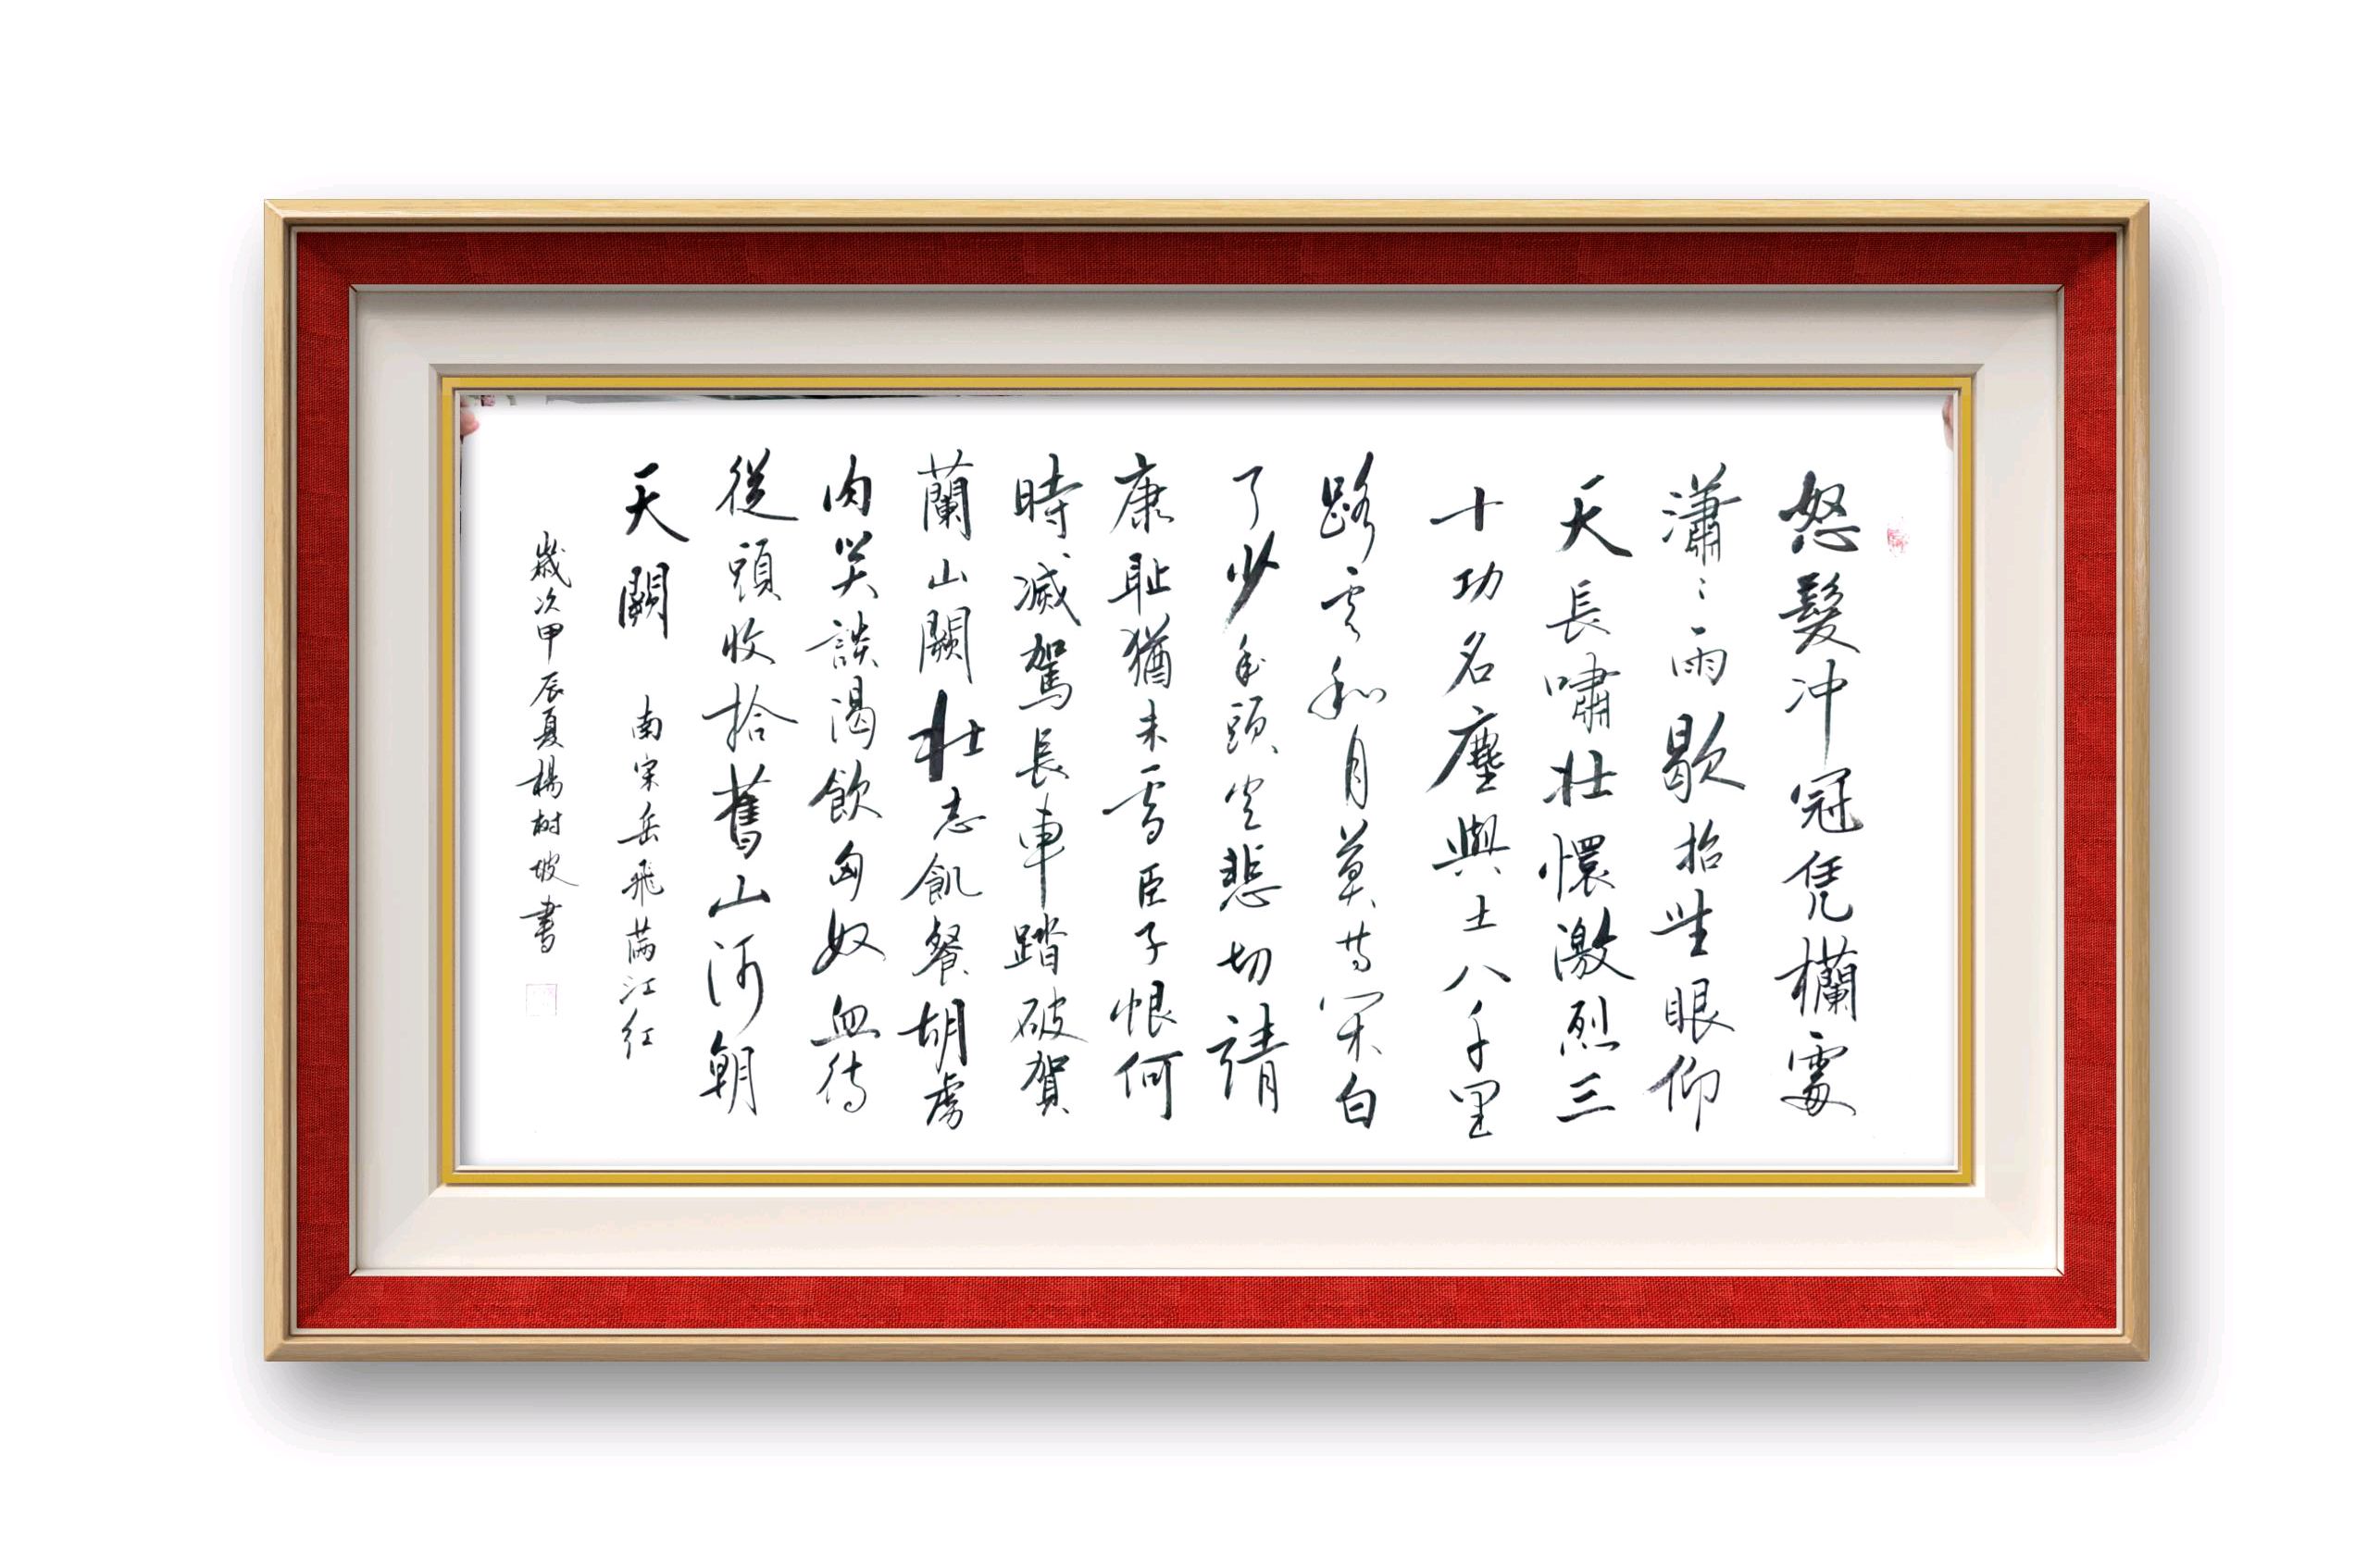 怒髮冲冠凭欄處
瀟〻雨歇抬望眼仰
天長嘯壯懷激烈三
十功名塵與土八千里
路雲和月莫等閑白
了少年頭空悲切靖
康耻猶未雪臣子恨何
時滅駕長車踏破賀
蘭山闕壯志飢餐胡虜
肉笑談渴飲匈奴血待
從頭收拾舊山河朝
天闕 南宋岳飛滿江红
歲次甲辰夏楊树坡書